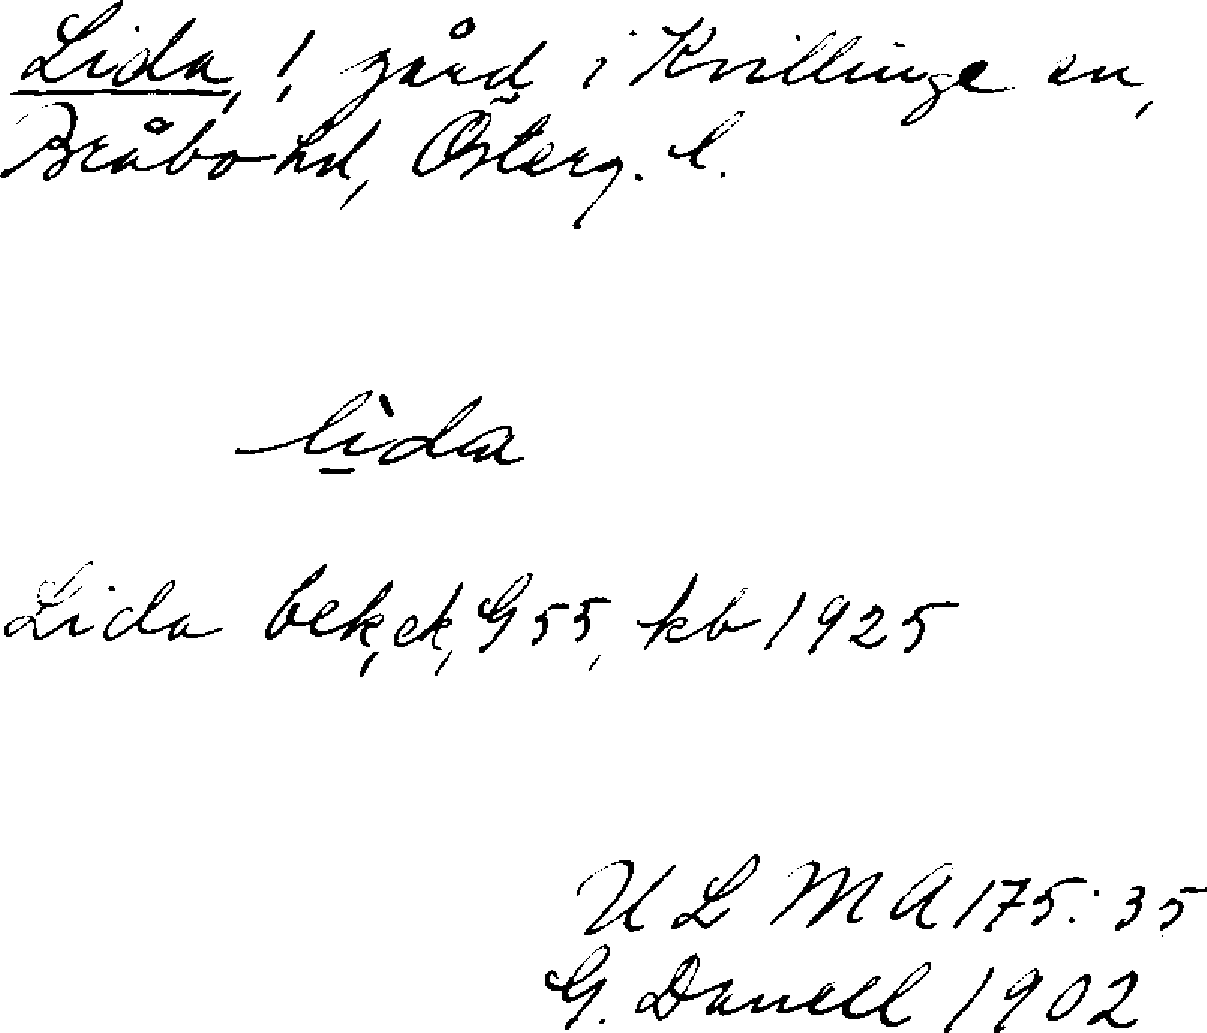 Lida, !, gård i Kvillinge sn,
Bråbo hd, Österg. l.
lì̱da
Lida bek, ek, G 55, kb 1925
U L M A 175:35
G. Danell 1902